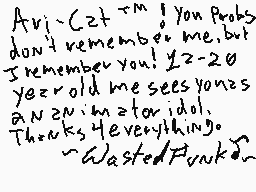 Ari-Cat ™! You Probs
don't remember me, but
I remember you! 12-20
year old me sees you as
an animator idol.
Thanks 4 everything.
~Wasted Punk~